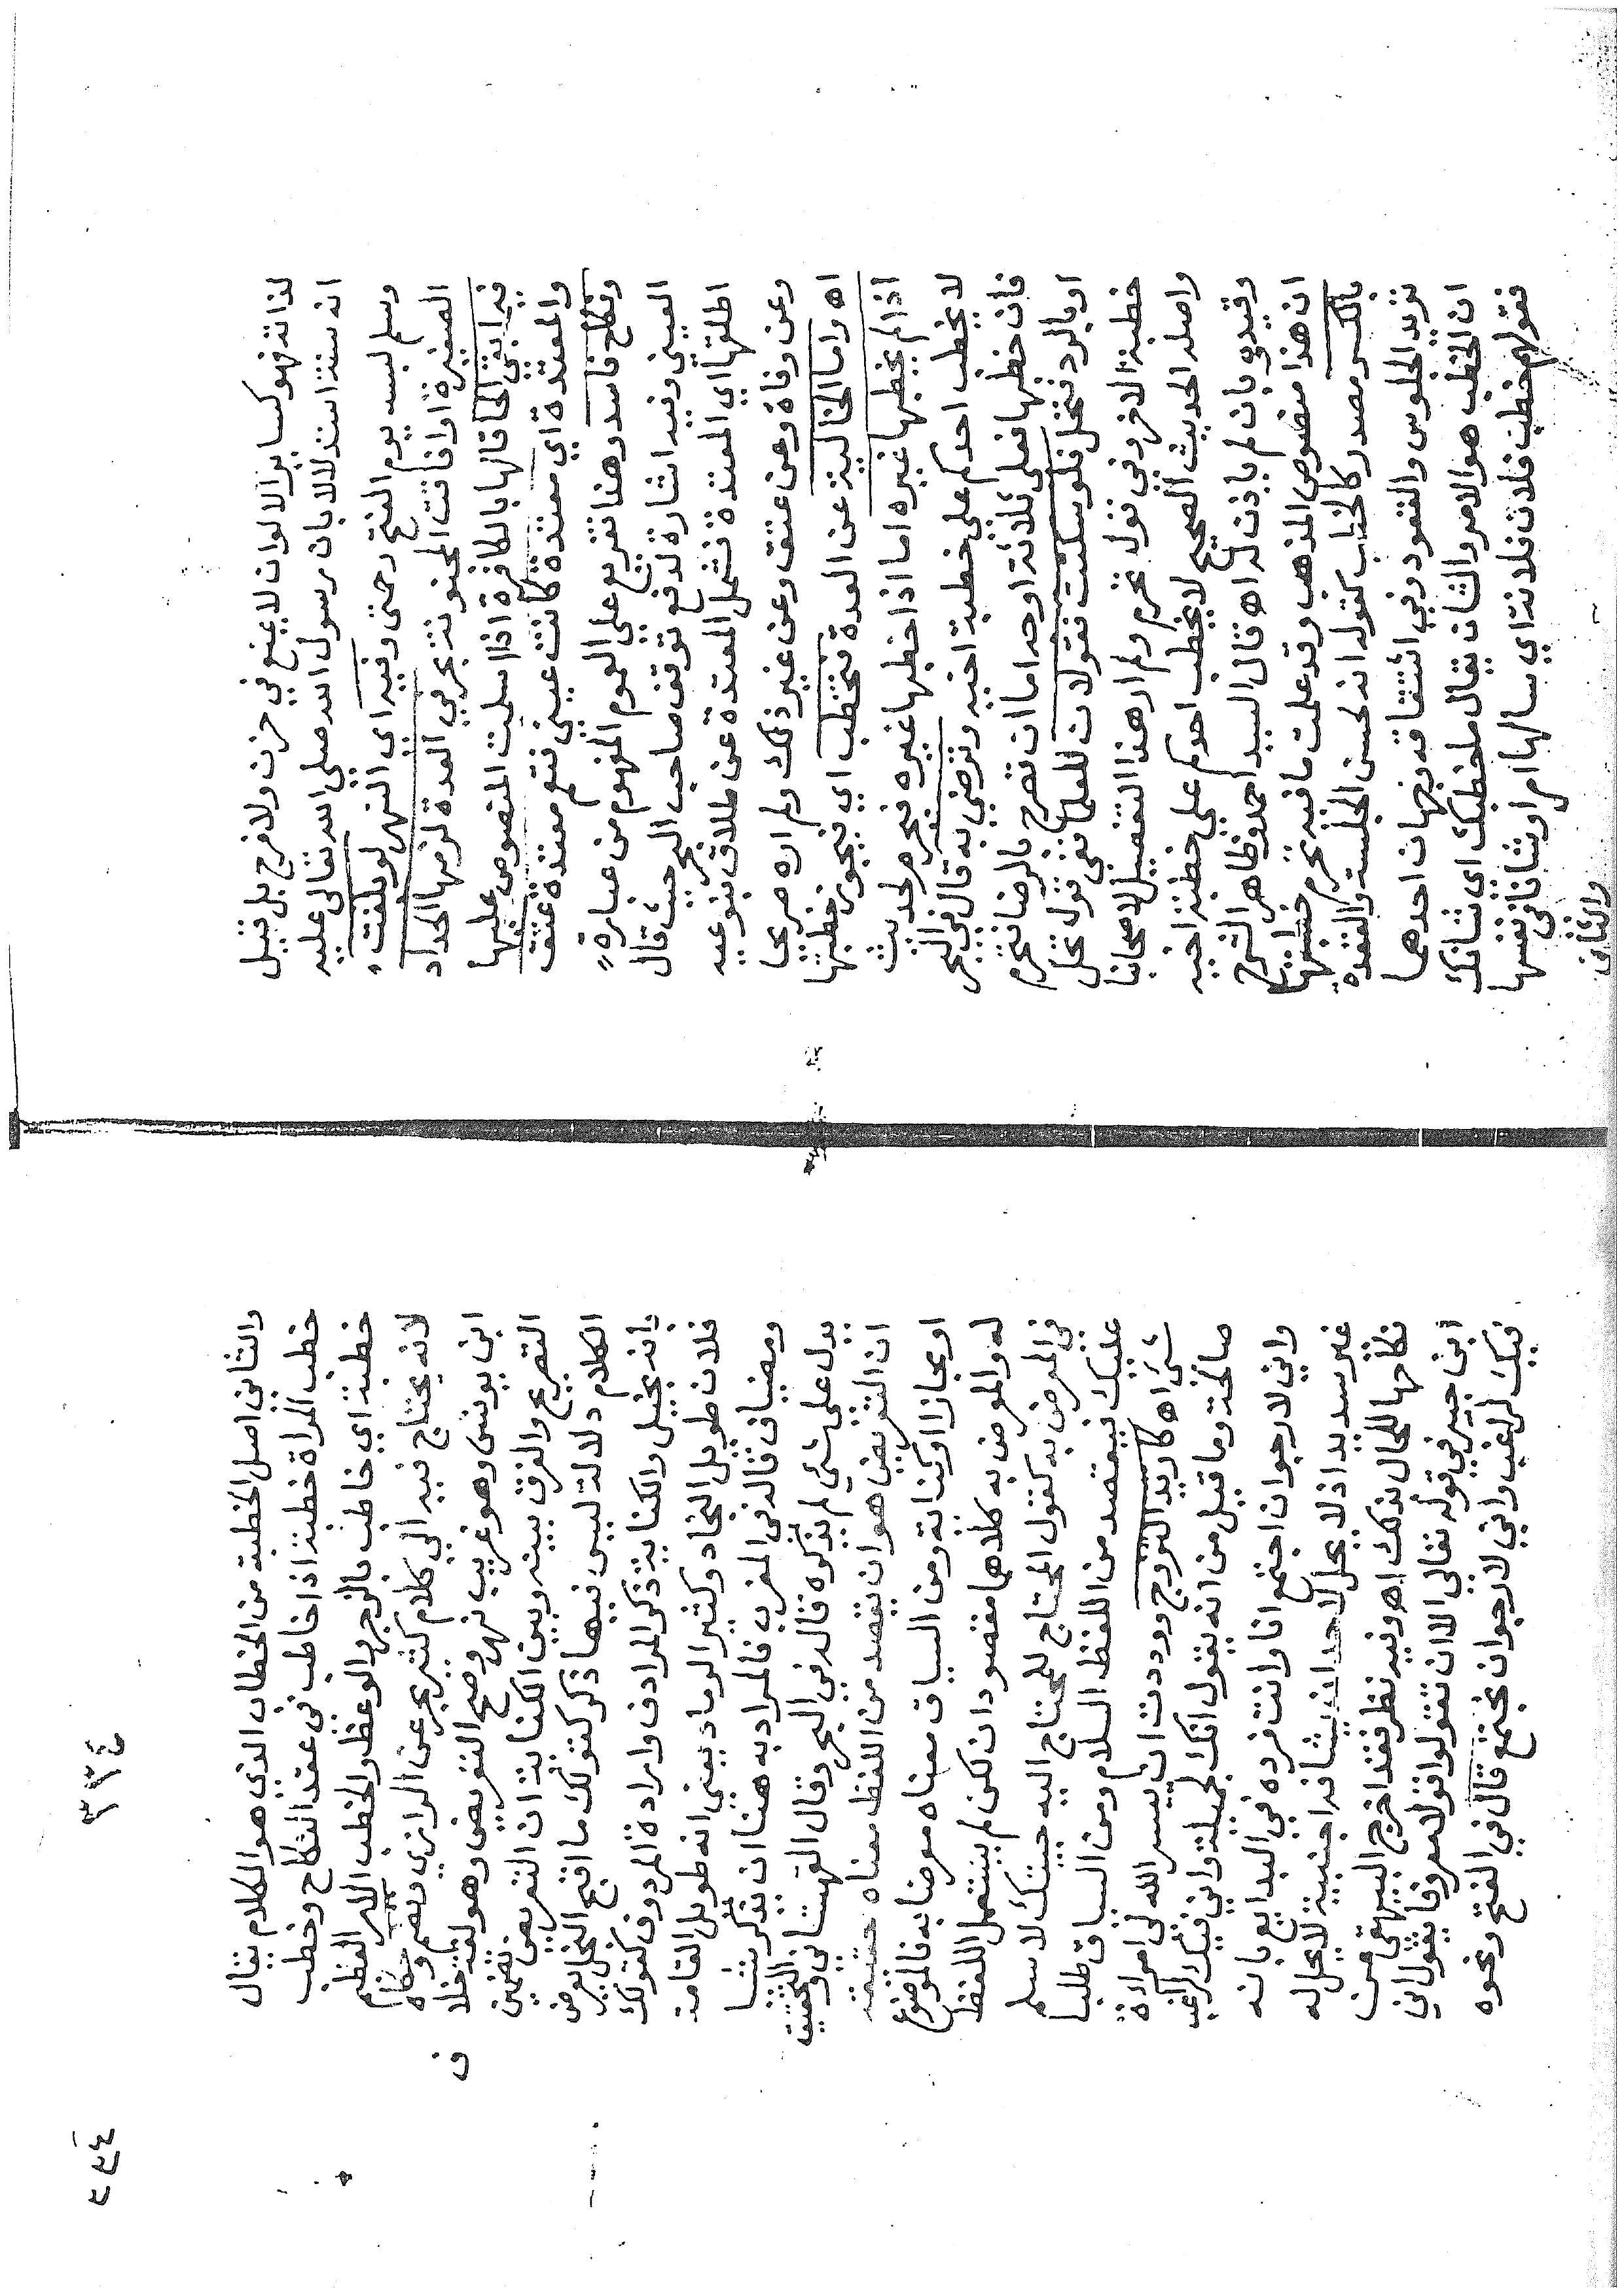 لذاته فهو كسابر الالوان لا يمنع في حزن ولا فرح بل قيل
انه سنة استدلالا بان رسول الله صلى الله تعالى عليه
وسلم لبسه يوم الفتح رحمتى وفيه اي النهر لو بلغت
الصغيرة او افاقت المجنونة في العدة لزمها الحداد
فيما بقى الحاقالها بالكافرة اذا اسلمت المنصوص عليها
والمعتدة اي معتدة كانت عيني فتعم معتدة عتق
ونكاح فاسد وهنا تفريع على العموم المفهوم من عبارة
العيني وفيه اشارة لدفع توقف صاحب البحر حيث قال
اطلقها اي المعتدة فتشمل المعتدة عن طلاق بنوعيه
وعن وفاة وعن عتق وعن غير ذلك ولم اره صريحا
اه واما الخالية عن العدة فتخطب اي فيجوز خطبتها
اذا لم يخطبها غيره اما اذا خطبها غيره فيحرم لحديث
لا يخطب احدكم على خطبة اخيه وترضى به قال في البحر
فان خطبها فعلى ثلاثة اوجه اما ان تصرح بالرضا فتحرم
او بالرد فتحل فلو سكتت فقولان للعلما ففي قول تحل
خطبة الاخر وفي قول تحرم ولم ار هذا التفصيل لاصحابنا
واصله الحديث الصحيح لا يخطب احدكم على خطبة اخيه
وقيدوه بان لم ياذن له اه قال السيد احمد وظاهر الشرح
ان هذا منصوص المذهب وقد علمت ما فيه تحرم خطبتها
بالكسر مصدر كالخطب كقوله انه لحسن الجلسة والقعدة
تريد الجلوس والقعود وفي اشتقاقه وجهان احدهما
ان الخطب هو الامر والشان يقال ما خطبك اى شانك
فقولهم خطب فلان فلانة اي سالها امرا وشانا في نفسها
والثاني
٢٣٤
والثاني اصل الخطبة من الخطاب الذي هو الكلام يقال
خطب المراة خطبة اذا خاطب في عقد النكاح وخطب
خطبة اي خاطب بالزجر والوعظ والخطب الامر العظيم
لانه يحتاج فيه الى كلام كثير بحر عن الرازي وبضم وحكاه
ابن يونس وهو غريب نهر وصح التعريض وهو لغة خلاف
التصريح والفرق بينه وبين الكناية ان التعريض تضمين
الكلام دلالة ليس فيها ذكر كقولك ما اقبح البخل يعرض
بانه بخيل والكناية ذكر المرادف وارادة المردوف كقولك
فلان طويل النجاد وكثير الرماد يعني انه طويل القامة
ومضياف قاله في المغرب فالمراد به هنا ان يذكر شيئا
يدل على شئ لم يذكره قاله في البحر وقال القهستاني والتحقيق
ان التعريض هو ان يقصد من اللفظ معناه حقيقة
او مجازا او كناية ومن السياق معناه معرضا به فالموضوع
له والمعرض به كلاهما مقصودان لكن لم يستعمل اللفظ
في المعرض به كقول المحتاج للمحتاج اليه جيتك لاسلم
عليك فيقصد من اللفظ السلام ومن السياق طلبا
شئ اه كاريد التزوج ووددت ان ييسر الله لى امراة
صالحة وما قيل من انه يقول انك لجميلة واني فيك لراغب
واني لارجو ان اجتمع انا وانت فرده في البدايع بانه
غير سديد اذ لا يحل لاحد ان يشافه اجنبية لا يحل له
نكاحها للحال بذلك اه وفيه نظر فقد اخرج البيهقي عن
ابن جبير في قوله تعالى الا ان تقولوا قولا معروفا يقول اني
فيك لراغب واني لارجو ان نجتمع قال في الفتح ونحوه